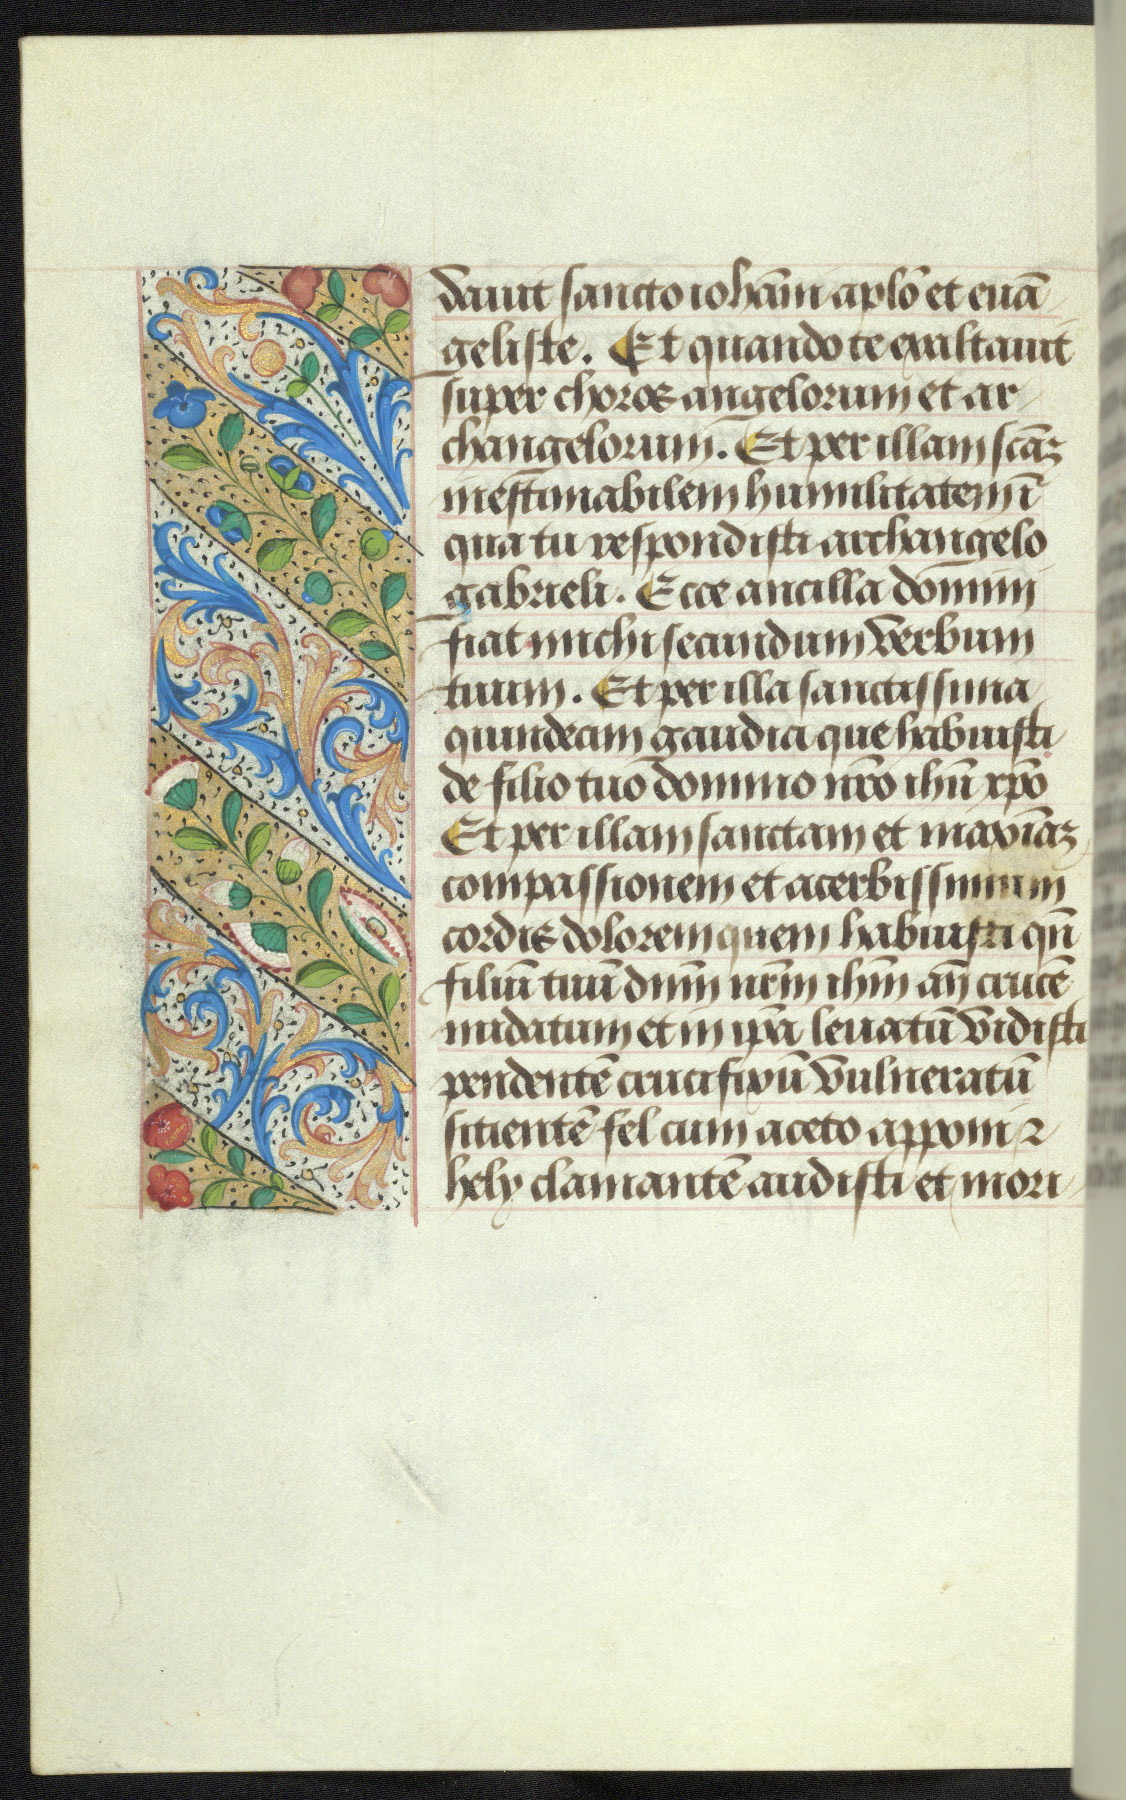 dauit sancto ioh̄ani aplō et euā
geliste. Et quando te exaltauit
super choros angelorum et ar
changelorum. Et per illam scāꝫ
inestimabilem humilitatem ī
qua tu respondisti archangelo
gabrieli. Ecce ancilla domini
fiat michi secundum verbum
tuum. Et per illa sanctissima
quindecim gaudia que habuisti
de filio tuo domino nr̄o ihū xp̄o
Et per illam sanctam et maxīaꝫ
compassionem et acerbissimum
cordis dolorem quem habuisti qn̄
filiū tuū dnm̄ nrm̄ ihm̄ an̄ crucē
nudatum et in ip̄a leuatū vidisti
pendentē crucifixū vulneratū
sitientē fel cum aceto apponi ꝛ
hely clamantē audisti et mori